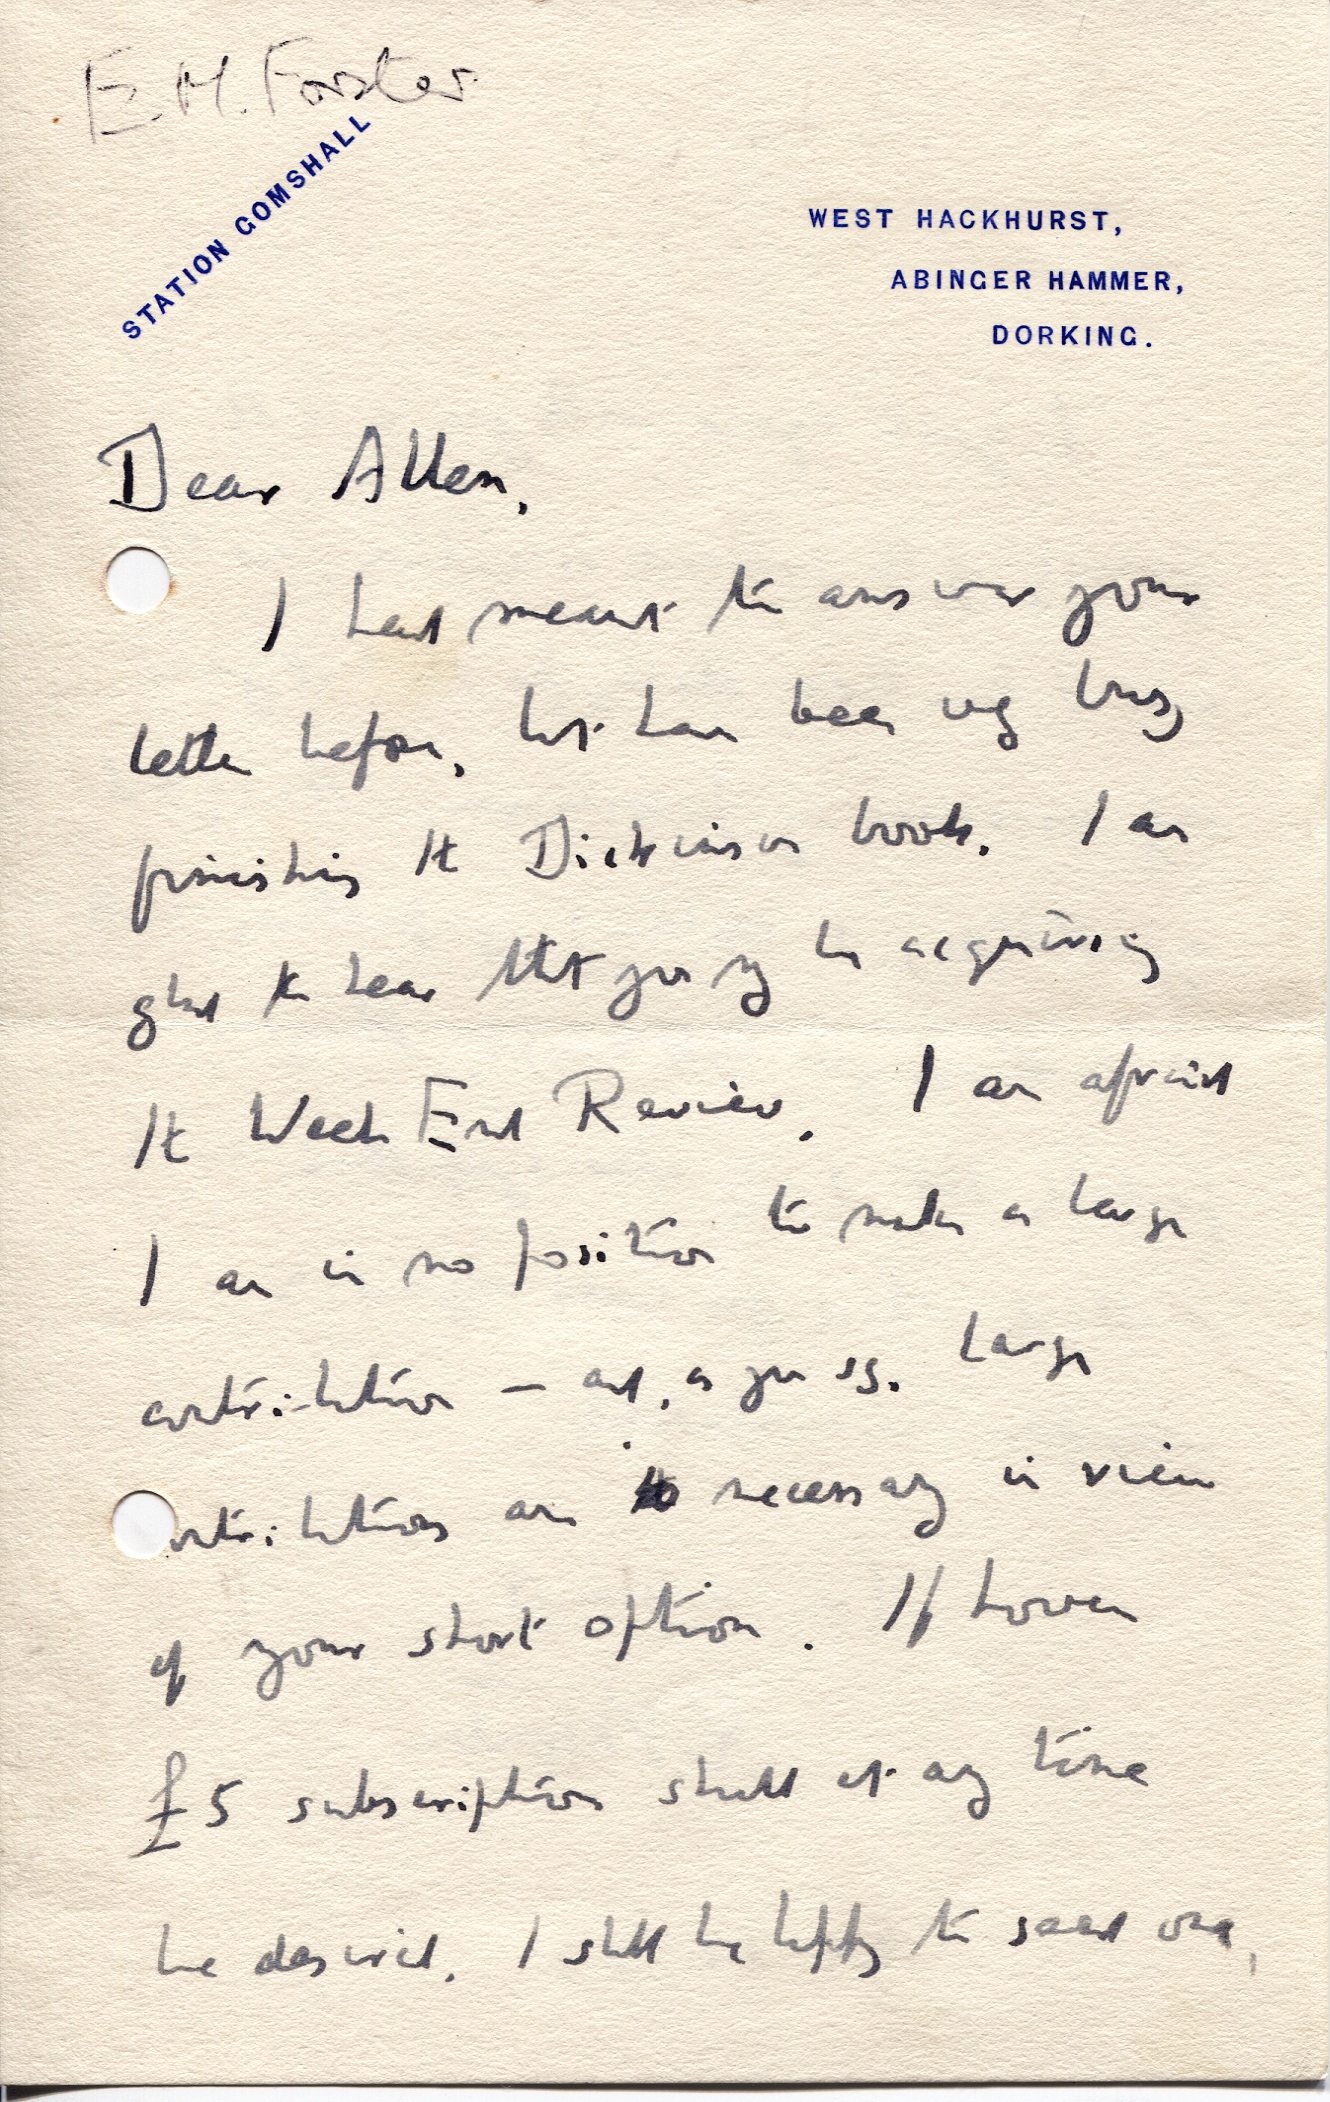 E. M. Forster
STATION GOMSHALL
WEST HACKHURST,
ABINGER HAMMER,
DORKING.
Dear Allen,
I had meant to answer your
letter before, but have been very busy
finishing the Dickinson book. I am
glad to hear that you may be acquiring
the Week End Review. I am afraid
I am in no position to make a large
contribution — and, as you say, large
contributions are necessary in view
of your short option. If however
£5 subscription should at any time
be desired, I shall be happy to send one,